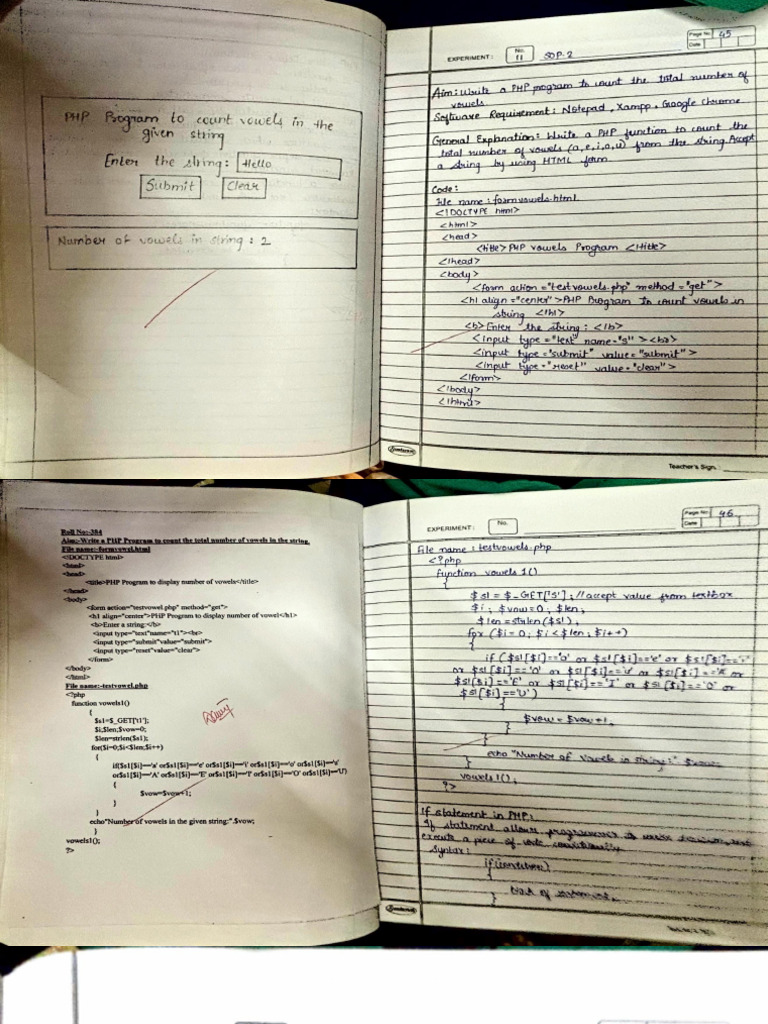 PHP Program to count vowels in the
given string
Enter the string: Hello
Submit Clear
Number of vowels in string : 2
Page No. 45
Date
EXPERIMENT: No. 11 SOP-2
Aim: Write a PHP program to count the total number of
vowels
Software Requirement: Notepad, Xampp, Google Chrome
General Explanation: Write a PHP function to count the
total number of vowels (a,e,i,o,u) from the string. Accept
a string by using HTML form
Code:
File name: formvowels.html
<!DOCTYPE html>
<html>
<head>
<title>PHP vowels Program </title>
</head>
<body>
<form action="testvowels.php" method="get">
<h1 align="center">PHP Program to count vowels in
string </h1>
<b>Enter the string: </b>
<input type="text" name="s1"><br>
<input type="submit" value="submit">
<input type="reset" value="clear">
</form>
</body>
</html>
Sundaram
Teacher's Sign.:
Roll No:-384
Aim:-Write a PHP Program to count the total number of vowels in the string.
File name:-formvowel.html
<!DOCTYPE html>
<html>
<head>
<title>PHP Program to display number of vowels</title>
</head>
<body>
<form action="testvowel.php" method="get">
<h1 align="center">PHP Program to display number of vowel</h1>
<b>Enter a string:</b>
<input type="text"name="t1"><br>
<input type="submit"value="submit">
<input type="reset"value="clear">
</form>
</body>
</html>
File name:-testvowel.php
<?php
function vowels1()
{
$s1=$_GET['t1'];
$i;$len;$vow=0;
$len=strlen($s1);
for($i=0;$i<$len;$i++)
{
if($s1[$i]=='a' or$s1[$i]=='e' or$s1[$i]=='i' or$s1[$i]=='o' or$s1[$i]=='u'
or$s1[$i]=='A' or$s1[$i]=='E' or$s1[$i]=='I' or$s1[$i]=='O' or$s1[$i]=='U')
{
$vow=$vow+1;
}
}
echo"Number of vowels in the given string:".$vow;
}
vowels1();
?>
Page No. 46
Date
EXPERIMENT: No.
File name: testvowels.php
<?php
function vowels1()
{
$s1 = $_GET['S']; //accept value from textbox
$i; $vow=0; $len;
$len=strlen($s1);
for ($i=0; $i<$len; $i++)
{
if ($s1[$i]=='a' or $s1[$i]=='e' or $s1[$i]=='i'
or $s1[$i]=='o' or $s1[$i]=='u' or $s1[$i]=='A' or
$s1[$i]=='E' or $s1[$i]=='I' or $s1[$i]=='O' or
$s1[$i]=='U')
{
$vow = $vow+1;
}
}
echo "Number of vowels in string:" $vow;
}
vowels1();
?>
If statement in PHP:
If statement allows programmers to
execute a piece of code conditionally
Syntax:
if(condition)
{
of
}
Sundaram